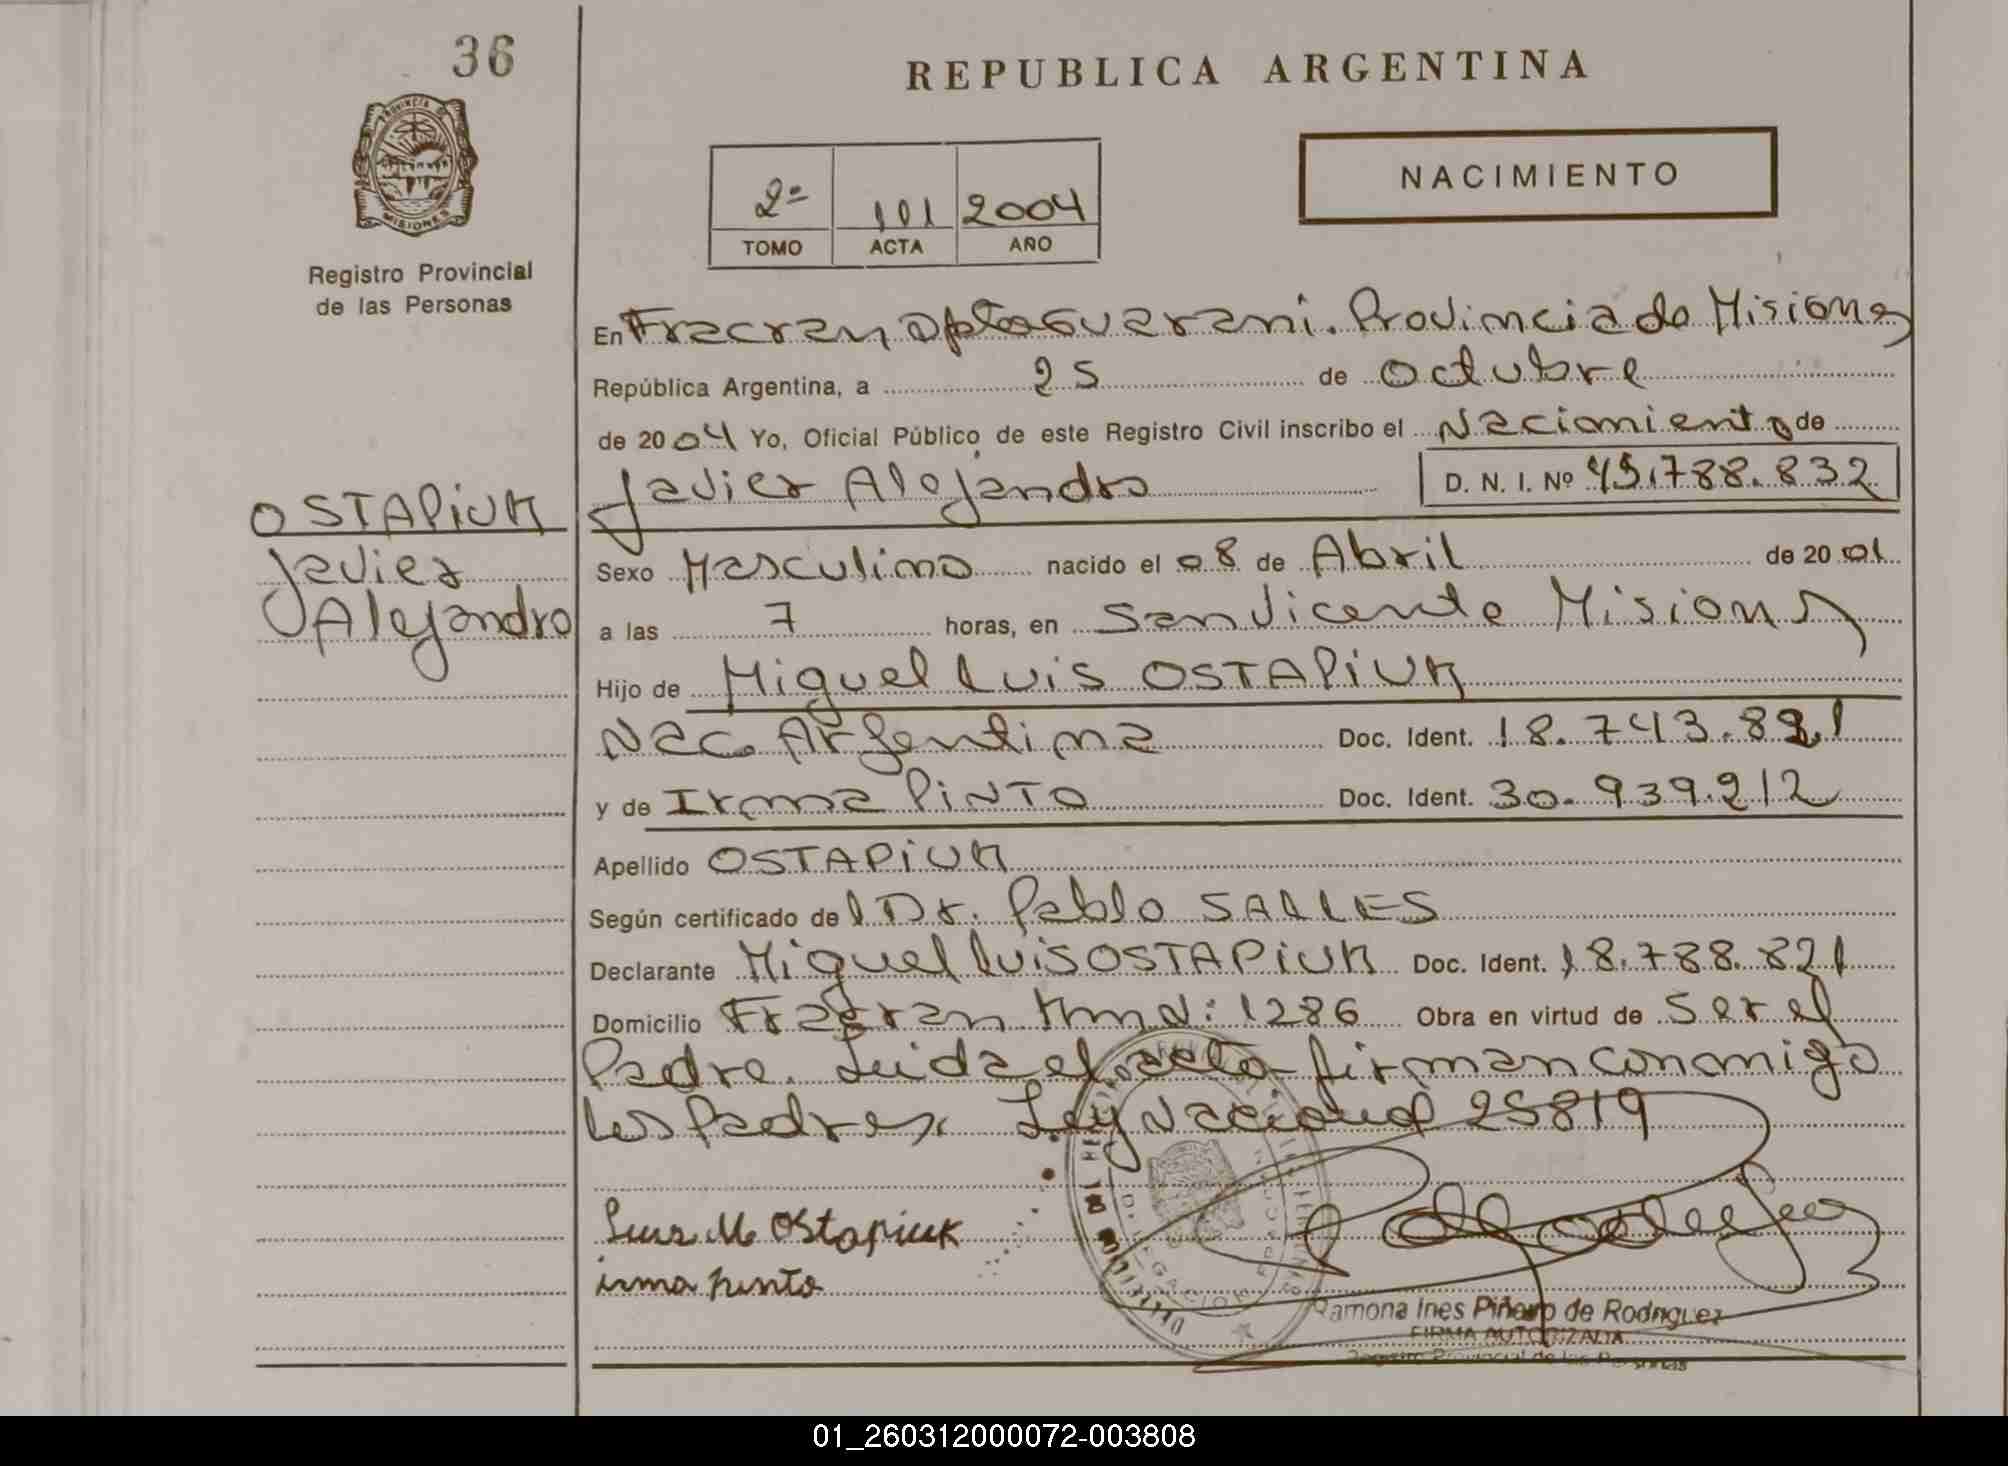 36
REPUBLICA ARGENTINA
PROVINCIA DE
MISIONES
NACIMIENTO
2º 101 2004
TOMO ACTA AÑO
Registro Provincial
de las Personas
En Fracran Dpto Guarani. Provincia de Misiones
República Argentina, a 25 de Octubre
de 2004 Yo, Oficial Público de este Registro Civil inscribo el Nacimiento de
Javier Alejandro D. N. I. Nº 45.788.832
OSTAPiUK
Javier
Alejandro
Sexo Masculino nacido el 08 de Abril de 2001
a las 7 horas, en San Vicente Misiones
Hijo de Miguel Luis OSTAPiUK
Nac. Argentina Doc. Ident. 18.743.821
y de Irma PiNTO Doc. Ident. 30.939.212
Apellido OSTAPiUK
Según certificado del Dr. Pablo SALLES
Declarante Miguel Luis OSTAPiUK Doc. Ident. 18.788.821
Domicilio Fragran Km N: 1286 Obra en virtud de ser el
Padre. Leida el acta firman conmigo
los Padres. Ley Nacional 25819
Luis M Ostapiuk
irma pinto
Ramona Ines Piñeyro de Rodriguez
FIRMA AUTORIZADA
Registro Provincial de las Personas
01_260312000072-003808